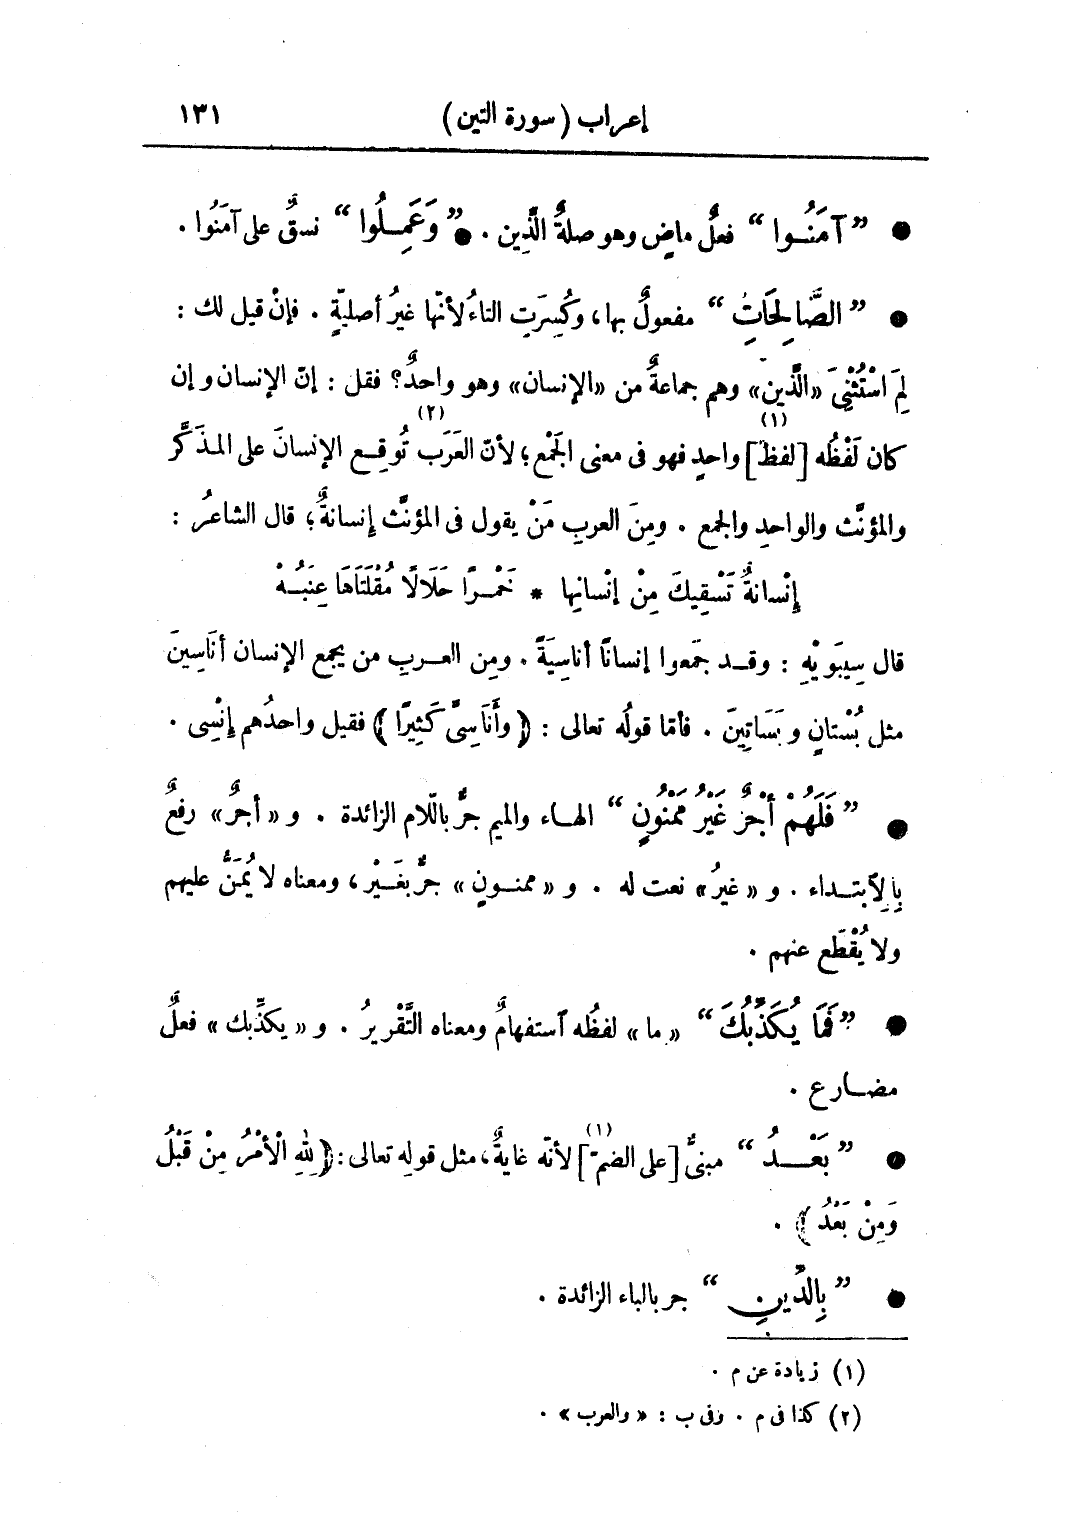 إعراب (سورة التين) ١٣١
● ”آمَنُوا“ فعلٌ ماضٍ وهو صلةُ الَّذِين . ● ”وَعَمِلُوا“ نسقٌ على آمَنُوا .
● ”الصَّالِحَاتِ“ مفعولٌ بها، وكُسِرَتِ التاءُ لأنّها غيرُ أصليّةٍ . فإنْ قيل لك :
لِمَ اسْتُثْنِيَ «الَّذين» وهم جماعةٌ من «الإنسان» وهو واحدٌ؟ فقل : إنّ الإنسان وإن
كان لَفْظُه [لفظَ](١) واحدٍ فهو فى معنى الجَمْعِ؛ لأنّ العَرَبَ(٢) تُوقِع الإنسانَ على المذكَّر
والمؤنَّث والواحدِ والجمع . ومِنَ العربِ مَنْ يقول فى المؤنَّث إنسانةٌ؛ قال الشاعرُ :
إِنْسانةٌ تَسْقِيكَ مِنْ إنْسانِها * خَمْرًا حَلَالًا مُقْلَتَاهَا عِنَبُهْ
قال سِيبَوَيْهِ : وقد جمَعوا إنسانًا أناسِيَةً . ومِن العربِ من يجمع الإنسان أنَاسِينَ
مثل بُسْتانٍ وبَسَاتِينَ . فأمّا قولُه تعالى : ﴿وأَنَاسِىَّ كَثِيرًا﴾ فقيل واحدُهم إنْسِى .
● ”فَلَهُمْ أَجْرٌ غَيْرُ مَمْنُونٍ“ الهاء والميم جرٌّ باللّام الزائدة . و «أجرٌ» رفعٌ
بِالِآبتداء . و «غيرُ» نعت له . و «ممنونٍ» جرٌّ بغَيْر، ومعناه لا يُمَنُّ عليهم
ولا يُقْطَع عنهم .
● ”فَمَا يُكَذِّبُكَ“ «ما» لفظُه آستفهامٌ ومعناه التَّقْريرُ . و «يكذِّبك» فعلٌ
مضارع .
● ”بَعْدُ“ مبنىٌّ [على الضمّ](١) لأنّه غايةٌ، مثل قولِه تعالى : ﴿لِلّٰهِ الْأَمْرُ مِنْ قَبْلُ
وَمِنْ بَعْدُ﴾ .
● ”بِالدِّينِ“ جر بالباء الزائدة .
(١) زيادة عن م .
(٢) كذا فى م . وفى ب : «والعرب» .